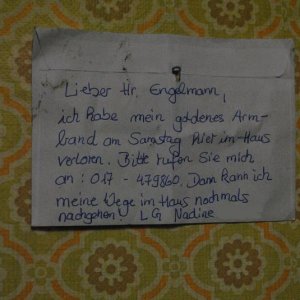 Lieber Hr. Engelmann,
ich habe mein goldenes Arm-
band am Samstag hier im Haus
verloren. Bitte rufen Sie mich
an: 017 - 479860. Dann kann ich
meine Wege im Haus nochmals
nachgehen. LG Nadine